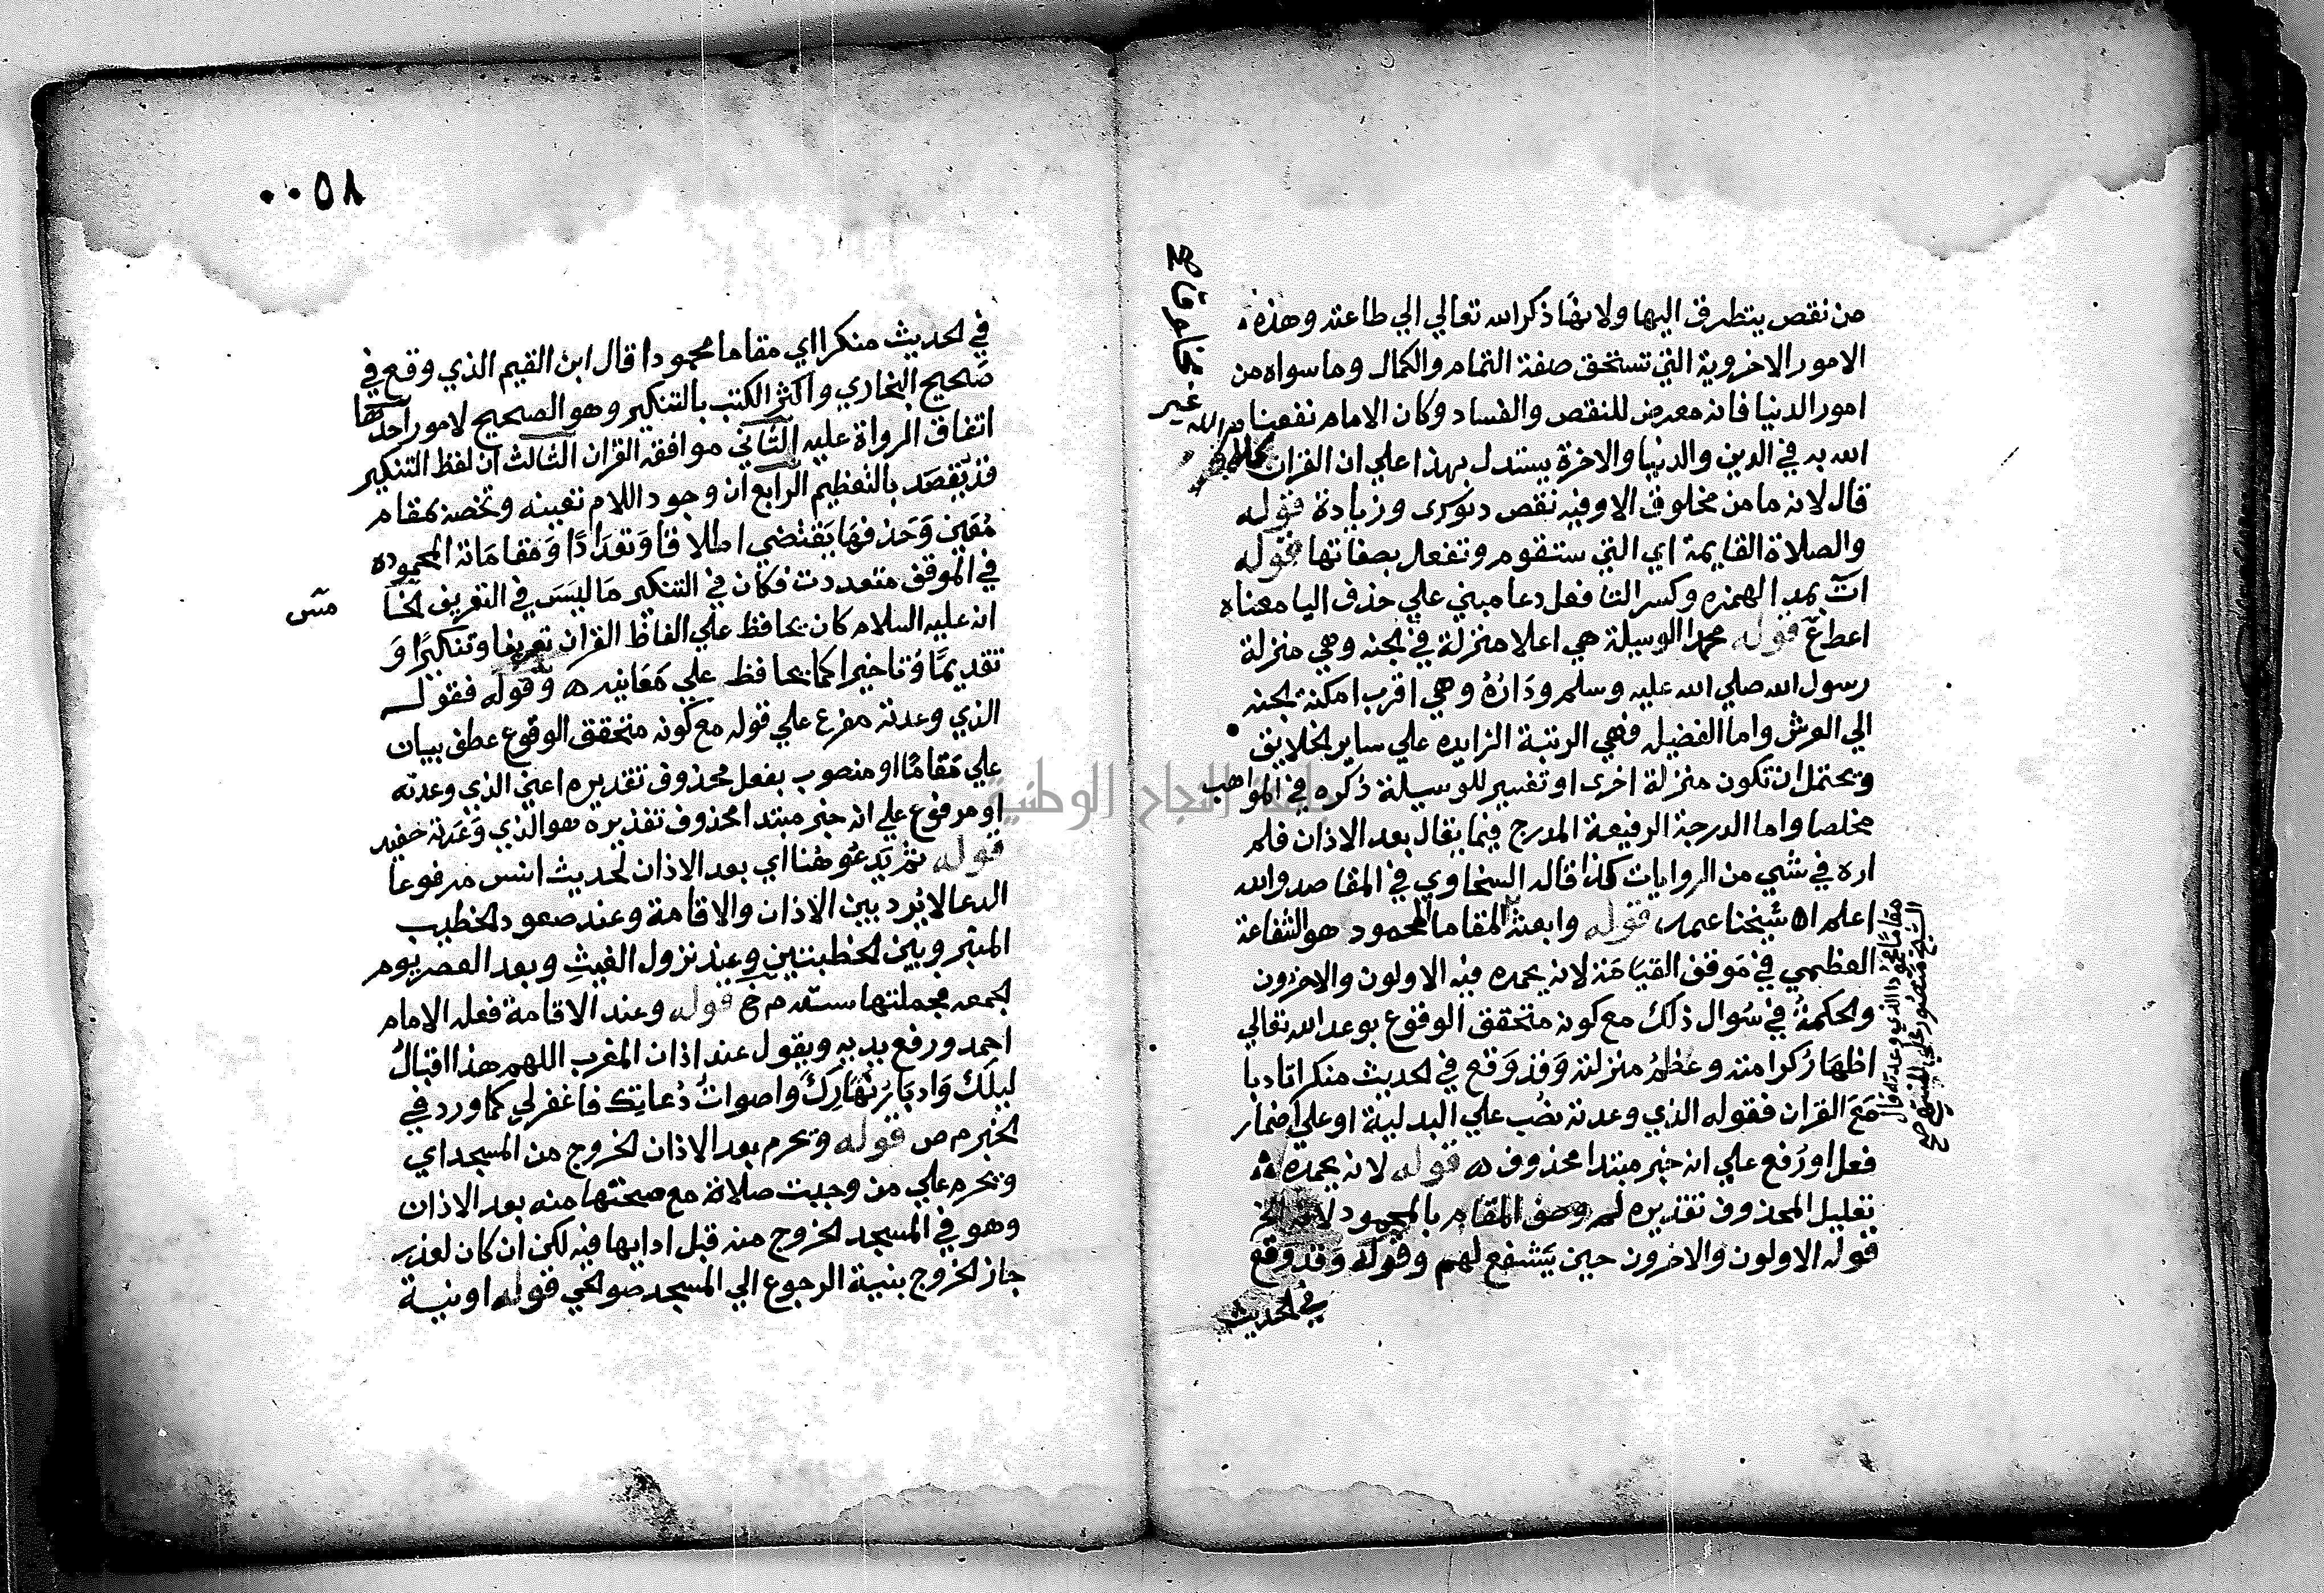 من نقص يتطرق اليها ولانها ذكر الله تعالي الي طاعته وهذه
الامور الاخروية التي تستحق صفة التمام والكمال وما سواه من
امور الدنيا فانه معرض للنقص والفساد وكان الامام نفعنا
الله به في الدين والدنيا والاخرة يستدل بهذا علي ان القران
غير مخلوق
قال لانه ما من مخلوق الا وفيه نقص وزيادة قوله
والصلاة القايمة اي التي ستقوم وتفعل بصفاتها قوله
ات بمد الهمزه وكسر التا فعل دعا مبني علي حذف اليا معناه
اعط قوله محمدا الوسيلة هي اعلا منزلة في الجنه وهي منزلة
رسول الله صلي الله عليه وسلم ودَارُهُ وهي اقرب امكنة الجنه
الي العرش واما الفضيله فهي الرتبة الزايده علي ساير الخلايق
ويحتمل ان تكون منزلة اخرى او تفسير للوسيلة ذكره في المواهب
مخلصا واما الدرجة الرفيعة المدرج فيما يقال بعد الاذان فلم
اره في شي من الروايات كذا قاله السخاوي في المقاصد والله
اعلم اه شيخنا قوله وابعثه المقام المحمود هو الشفاعة
العظمي في مَوقف القيَامَة لانه يحمده فيه الاولون والاخرون
والحكمةُ في سُوال ذلك مع كونه متحقق الوقوع بوعد الله تعالي
اظهَارُ كرامته وعظمُ منزلته وَقد وَقع في الحديث منكرا تادبا
مَعَ القران فقوله الذي وعدته نصُب علي البدلية او علي اضمار
فعل او رُفع علي انه خبر مبتدا محذوف اه قوله لانه يحمده
تعليل المحذوف تقديره لم وصف المقام بالمحمود لانه الخ
قوله الاولون والاخرون حين يَشفع لهم وقوله وَقد وقع
في الحديث
مقاما محمودا الذي وعدته قال
الشيخ منصور علي المنتهي
٠٠٥٨
في الحديث منكرا اي مقاما محمودا قال ابن القيم الذي وقع في
صَحيح البخاري واكثر الكتب بالتنكير وهو الصحيح لامور احدها
اتفاق الرواة عليه الثاني موافقه القران الثالث ان لفظ التنكير
قد يُقصَد بالتعظيم الرابع ان وجود اللام تعينه وتخصه بمقام
مُعَين وَحَذفهَا يَقتَضي اطلاقا وَتعَدادًا وَمقامَاته المحموده
في الموقف متعددت فكان في التنكير مَا ليسَ في التعريف
انه عليه السلام كان يحافظ علي الفاظ القران تعريفا وتنكيرًا وَ
تقديمًا وتاخيرا كما يحافظ علي مَعَانيه اه وَقوله فقوله
الذي وعدته مفرع علي قوله مع كونه متحقق الوقوع عطف بيان
علي مَقامًا او منصوب بفعل محذوف تقديره اعني الذي وعدته
او مرفوع علي انه خبر مبتدا محذوف تقديره هو الذي وَعَدته حفيد
قوله ثم يَدعُو هُنا اي بعد الاذان لحديث انس مرفوعا
الدعا لا يُرد بين الاذان والاقامة وعند صعود الخطيب
المنبر وبين الخطبتين وعند نزول الغيثِ وبعد العصر يوم
الجمعه فجملتها ستة م خ قوله وعند الاقامة فعله الامام
احمد ورفع يديه ويقول عند اذان المغرب اللهم هذا اقبالُ
ليلكَ وَادبَارُ نهَارِكَ واصواتُ دُعاتِك فاغفر لي كما ورد في
الخبر م ص قوله ويحرم بعد الاذان الخروج من المسجد اي
ويحرم علي من وجبت صلاة مع صحتها منه بعد الاذان
وهو في المسجد الخروج منه قبل ادايها فيه لكن ان كان لعذر
جاز الخروج بنية الرجوع الي المسجد صوالحي قوله او نية